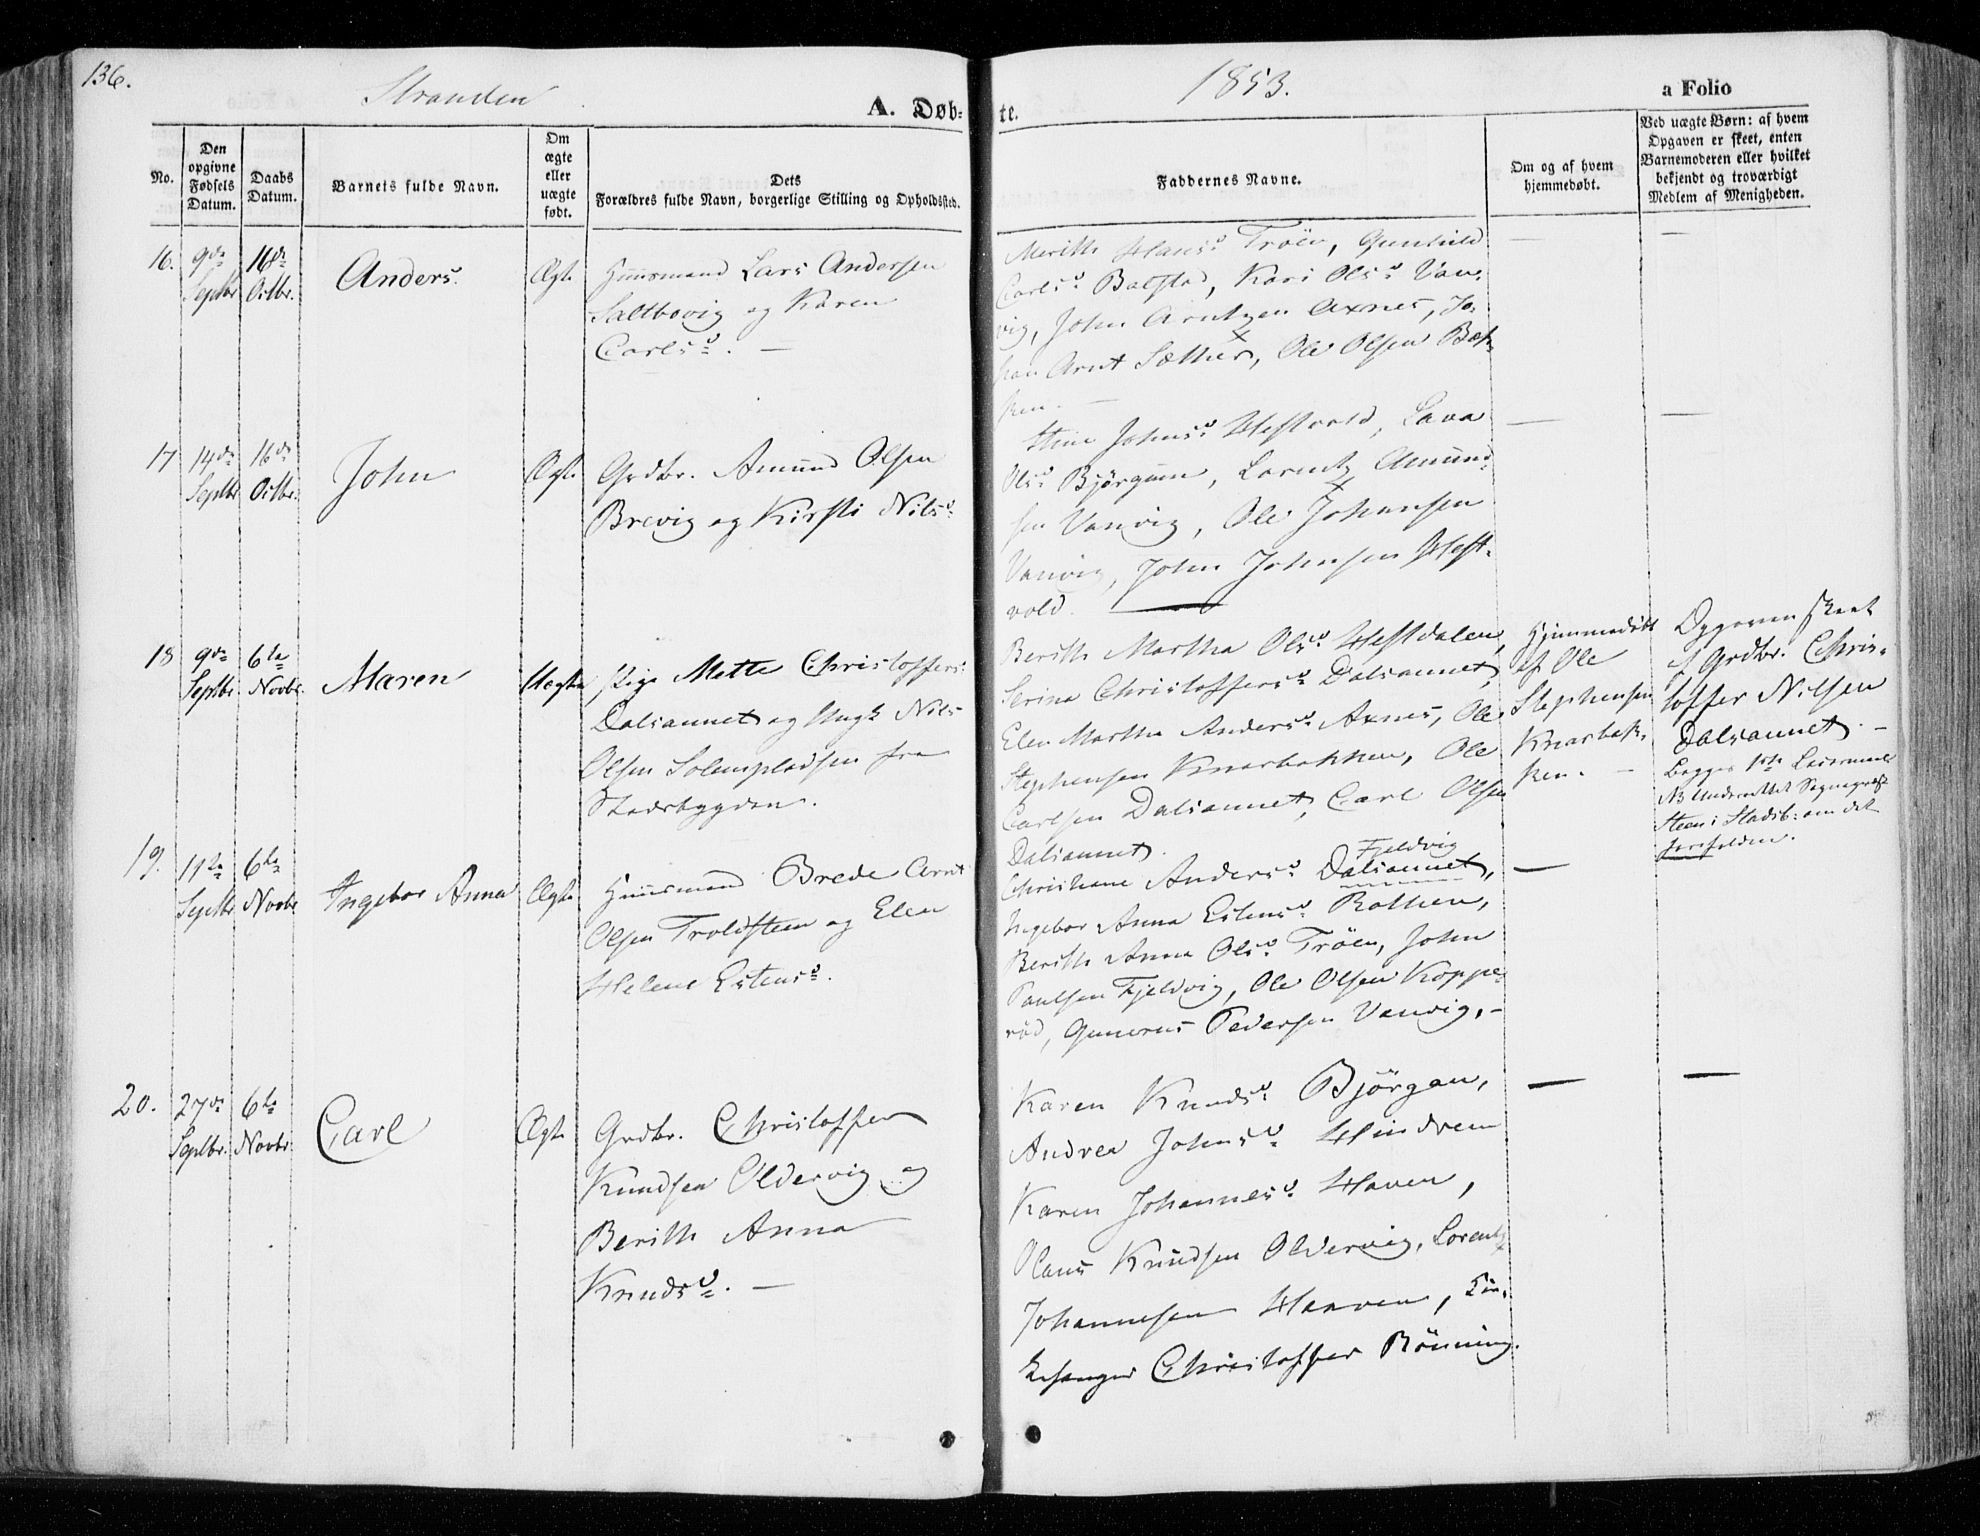 136.
Stranden
A. Døb-
te.
1853.
a Folio
No.
Den
opgivne
Fødsels
Datum.
Daabs
Datum.
Barnets fulde Navn.
Om
ægte
eller
uægte
født.
Dets
Forældres fulde Navn, borgerlige Stilling og Opholdssted.
Faddernes Navne.
Om og af hvem
hjemmedøbt.
Ved uægte Børn: af hvem
Opgaven er skeet, enten
Barnemoderen eller hvilket
bekjendt og troværdigt
Medlem af Menigheden.
16.
9de
Septbr
16de
Octbr.
Anders.
Ægte
Huusmand Lars Andersen
Saltbovig og Karen
Carlsd. —
Merith Hansd. Trøen, Gunhild
Carlsd. Balstad, Kari Olsd. Van-
vig, John Arntzen Axnes, Jo-
han Arnt Sæther, Ole Olsen Bak-
ken. —
—
—
17
14de
Septbr
16de
Octbr.
John
Ægte
Grdbr. Amund Olsen
Brevig og Kirsti Nilsd.
Stine Johnsd. Hestvold, Lava
Olsd. Bjørgum, Lorentz Amund-
sen Vanvig, Ole Johansen
Vanvig, John Johnsen Hest-
vold.
—
—
18
9de
Septbr
6te
Novbr.
Maren
Uægte
Pige Mette Christoffersd.
Dalsaunet og Ungk. Nils
Olsen Solemspladsen fra
Stadsbygden.
Berith Martha Olsd. Hestdalen,
Serina Christoffersd. Dalsaunet,
Elen Martha Andersd. Axnes, Ole
Stephensen Knarbakken, Ole
Carlsen Dalsaunet, Carl Olsen
Dalsaunet.
Hjemmedøbt
af Ole
Stephensen
Knarbak-
ken. —
Opgaven skeet
af Grdbr. Chris-
toffer Nilsen
Dalsaunet. —
Begges 1ste Leiermaal
NB Underrettet Sognepræst
Steen i Stadsb: om det
forefaldne.
19.
11te
Septbr
6te
Novbr
Ingebor Anna
Ægte
Huusmand Brede Arnt
Olsen Troldsteen og Elen
Helene Estensd.
Fjeldvig
Christiane Andersd. Dalsaunet,
Ingebor Anna Estensd. Rothen,
Berith Anna Olsd. Trøen, John
Paulsen Fjeldvig, Ole Olsen Koppe-
rød, Gunerus Pedersen Vanvig. —
—
20.
27de
Septbr.
6te
Novbr.
Carl
Ægte
Grdbr. Christoffer
Knudsen Oldervig og
Berith Anna
Knudsd. —
Karen Knudsd. Bjørgan,
Andrea Johnsd. Hindrem
Karen Johannesd. Haven,
Hans Knudsen Oldervig, Lorentz
Johannesen Haaven, Kir-
kesanger Christoffer Rønning.
—
—